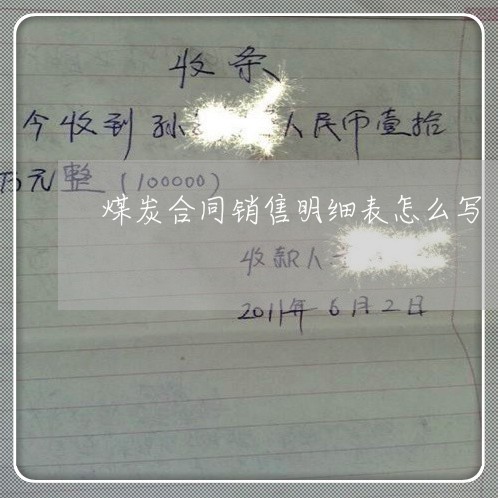 收条
今收到孙 人民币壹拾
万元整（100000）
煤炭合同销售明细表怎么写
收款人
2011年6月2日